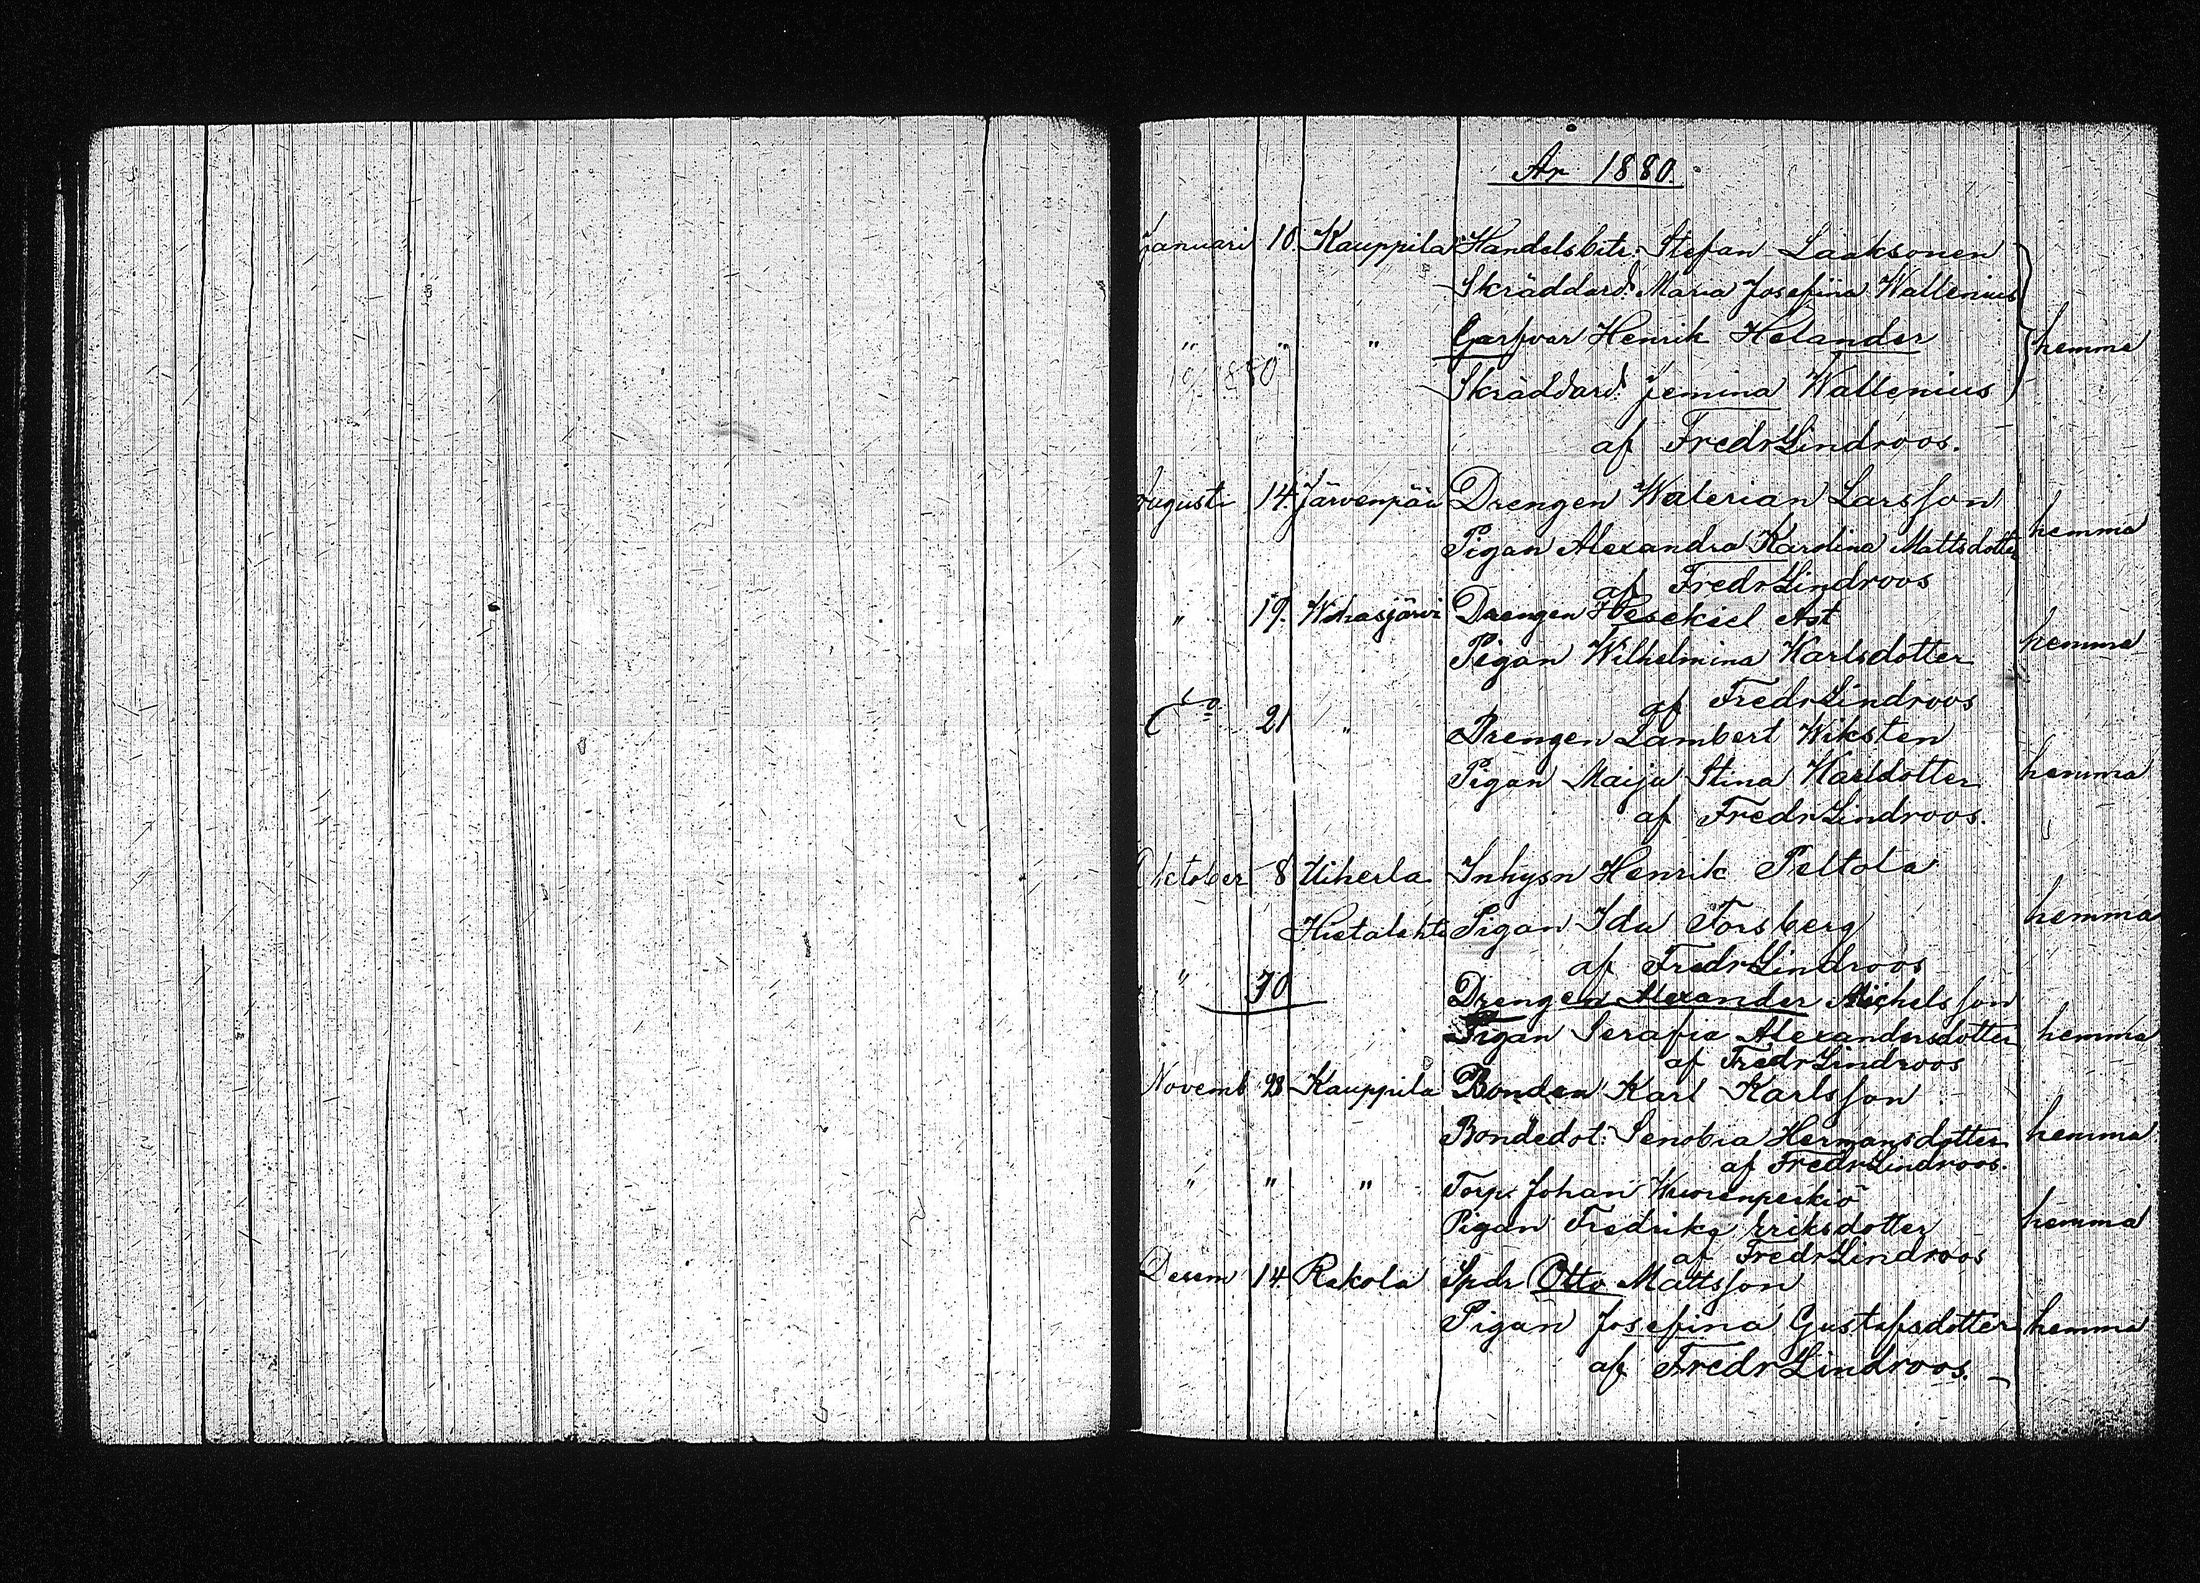 År 1880.
Januari 10. Kauppila Handelsbitr: Stefan Laaksonen
Skräddard: Maria Josefina Wallenius
" " " Garfvar Henrik Helander hemma
1880
Skräddard: Jemina Wallenius
af Fredr Lindroos.
Augusti 14. Järvenpää Drengen Walerian Larsson
Pigan Alexandra Karolina Mattsdotter hemma
af Fredr Lindroos
" 19. Drengen Hesekiel Ast
Pigan Wilhelmina Karlsdotter hemma
af Fredr Lindroos
21 " Drengen Lambert Wiksten
Pigan Maija Stina Karlsdotter hemma
af Fredr Lindroos.
Oktober 8 Uiherla Inhysn Henrik Peltola
Hietalahti Pigan Ida Forsberg hemma
af Fredr Lindroos
" 30 Drengen Alexander Michelsson
Pigan Serafia Alexandersdotter hemma
af Fredr Lindroos
Novemb 28 Kauppila Bonden Karl Karlsson
Bondedot: Senobia Hermansdotter hemma
af Fredr Lindroos.
" " " Torp. Johan Wuorenperkiö
Pigan Fredrika Eriksdotter hemma
af Fredr Lindroos
Decem 14. Rekola Spdr Otto Mattsson
Pigan Josefina Gustafsdotter hemma
af Fredr Lindroos.